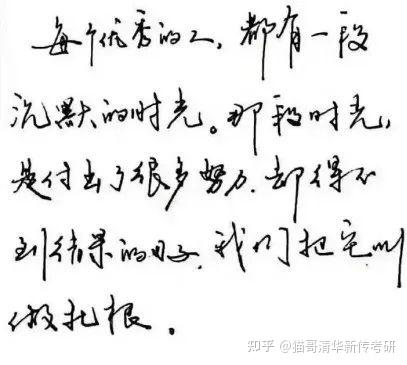 每个优秀的人，都有一段
沉默的时光。那段时光，
是付出了很多努力，却得不
到结果的日子，我们把它叫
做扎根。
知乎 @猫哥清华新传考研